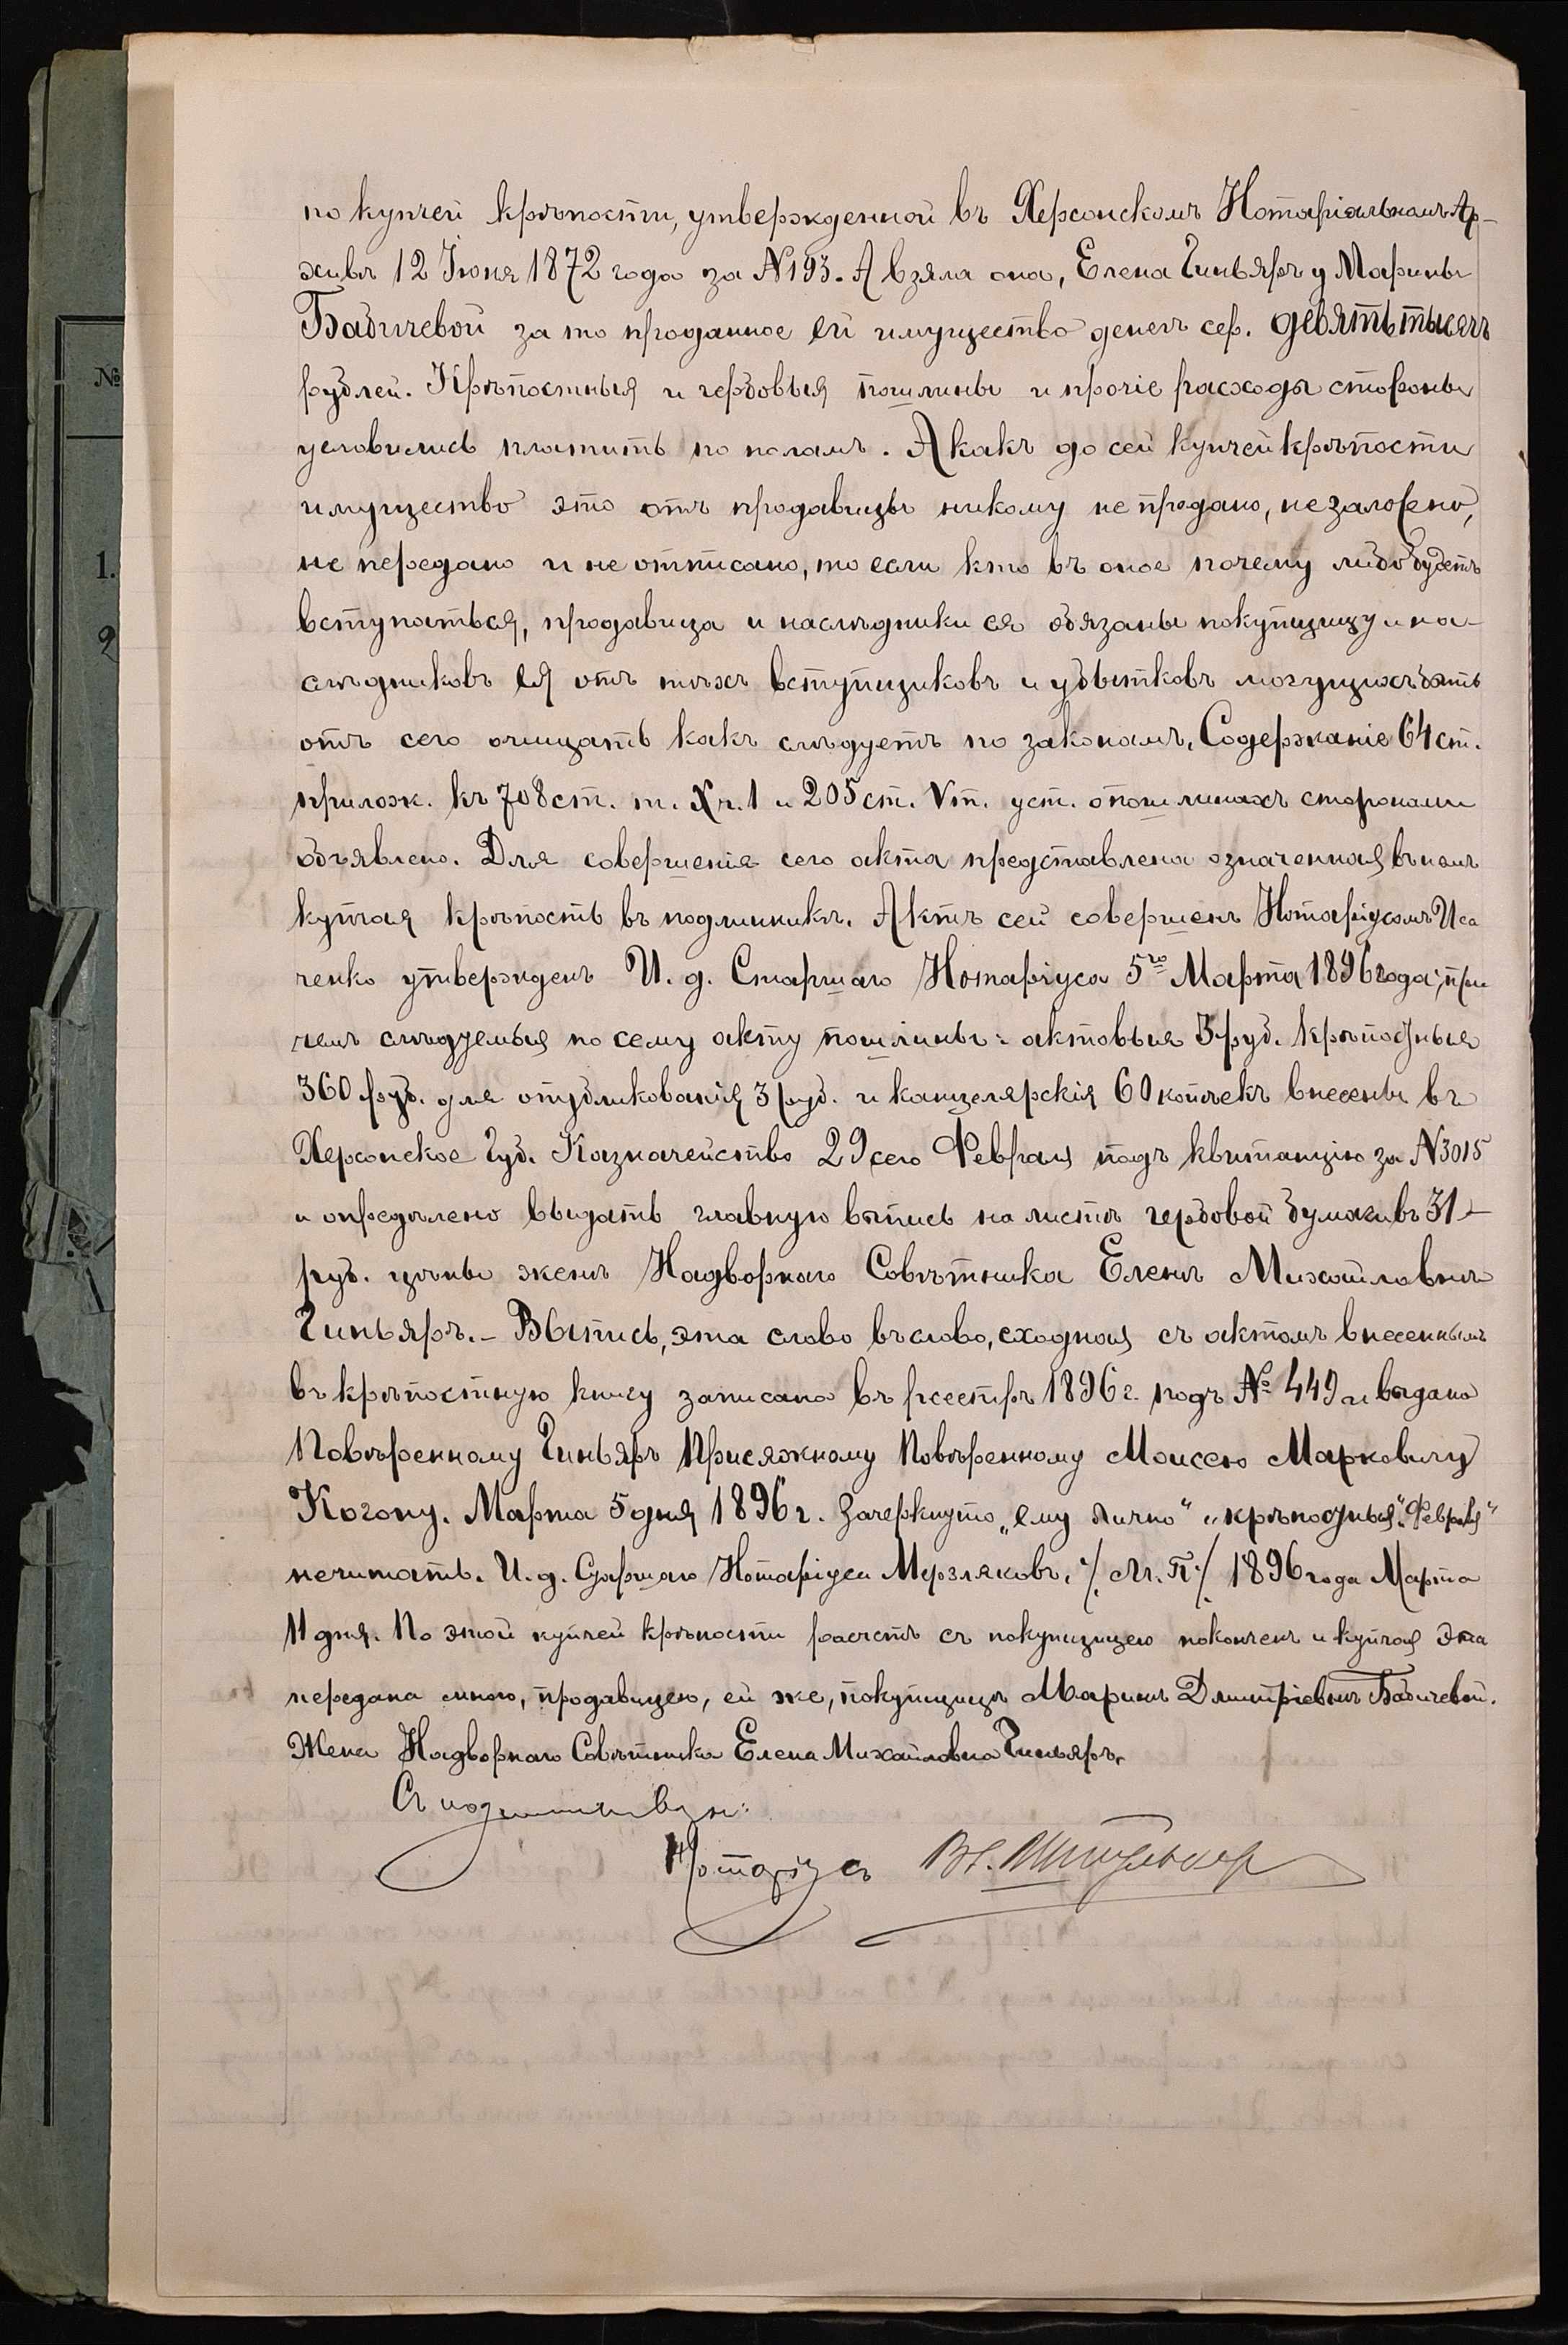 по купчей крѣпости, утвержденной въ Херсонскомъ Нотаріальномъ Ар-
хивѣ 12 Іюня 1872 года за №193. А взяла она, Елена Гиньяръ у Марины
Бабичевой за то проданное ей имущество денегъ сер. девять тысячъ
рублей. Крѣпостныя и гербовыя пошлины и прочіе расходы стороны
условились платить по поламъ. А какъ до сей купчей крѣпости
имущество это отъ продавицы никому не продано, не заложено,
не передано и не отписано, то если кто въ оное почему либо будетъ
вступаться, продавица и наслѣдники ея обязаны покупщицу и на-
слѣдниковъ ея отъ тѣхъ вступщиковъ и убытковъ могущихъ быть
отъ сего очищать какъ слѣдуетъ по законамъ, Содержаніе 64 ст.
прилож. къ 708 ст. т. X ч. 1 и 205 ст. V т. уст. о пошлинахъ сторонами
объявлено. Для совершенія сего акта представлена означенная въ немъ
купчая крѣпость въ подлинникѣ. Актъ сей совершенъ Нотаріусомъ Иса
ченко утвержденъ И. д. Старшаго Нотаріуса 5го Марта 1896 года; при
чемъ слѣдуемыя по сему акту пошлины: актовыя 3 руб. крѣпостныя
360 руб. для опубликованія 3 руб. и канцелярскія 60 копѣекъ внесены въ
Херсонское Губ. Казначейство 29 сего Февраля подъ квитанцію за №3015
и опредѣлено выдать главную выпись на листѣ гербовой бумаги въ 31
руб. цѣны женѣ Надворнаго Совѣтника Еленѣ Михайловнѣ
Гиньяръ. – Выпись, эта слово въ слово, сходная съ актомъ внесеннымъ
въ крѣпостную книгу записана въ реестръ 1896 г. подъ № 449 и выдана
Повѣренному Гиньяръ Присяжному Повѣренному Моисею Марковичу
Когону. Марта 5 дня 1896 г. Зачеркнуто „ему лично“ „крѣпостныя“ „Февраля“
нечитать. И. д. Старшаго Нотаріуса Мерзляковъ. /. М. П./ 1896 года Марта
11 дня. По этой купчей крѣпости расчетъ съ покупщицею поконченъ и купчая эта
передана мною, продавицею, ей же, покупщицѣ Маринѣ Дмитріевнѣ Бабичевой.
Жена Надворнаго Совѣтника Елена Михайловна Гиньяръ.
Съ подлиннымъ вѣрно:
Нотаріусъ